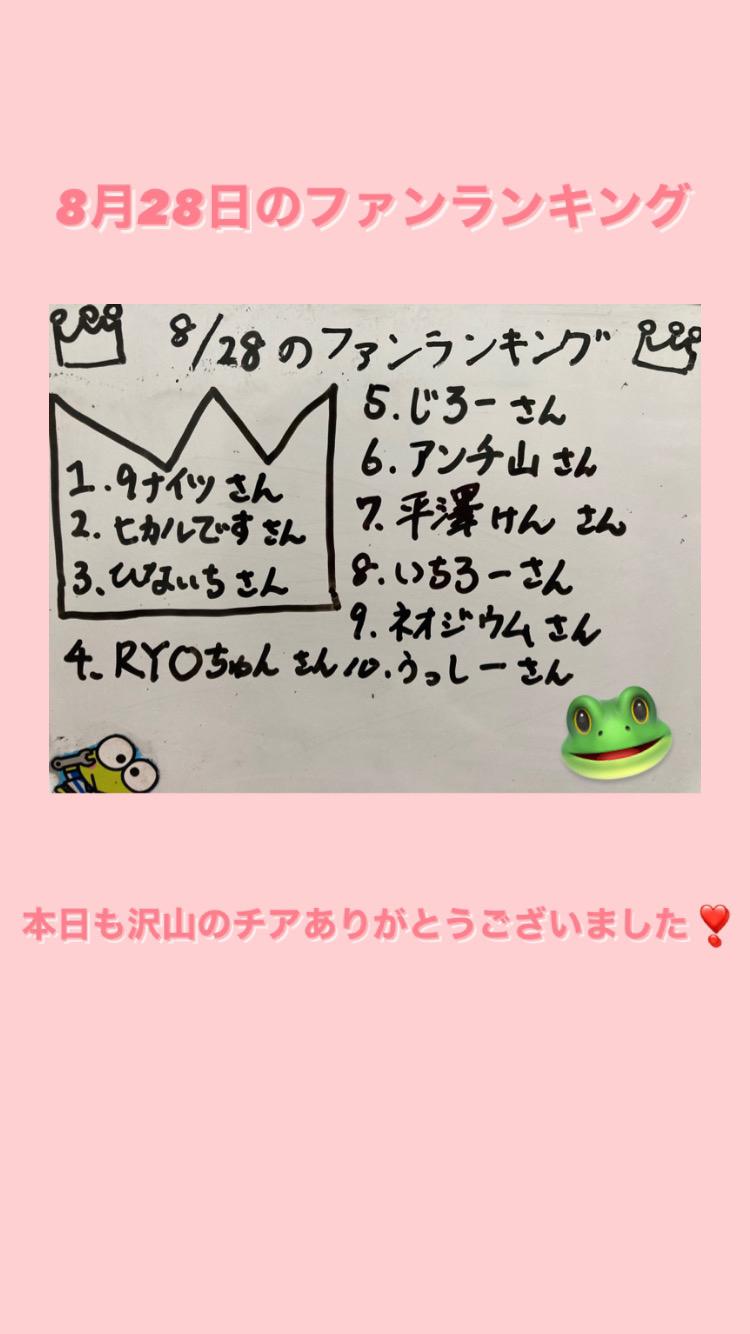 8月28日のファンランキング
8/28のファンランキング
1.9ナイツさん
2.ヒカルですさん
3.ひないちさん
4.RYOちゅんさん
5.じろーさん
6.アンチ山さん
7.平澤けんさん
8.いちろーさん
9.ネオジウムさん
10.うっしーさん
本日も沢山のチアありがとうございました❣️